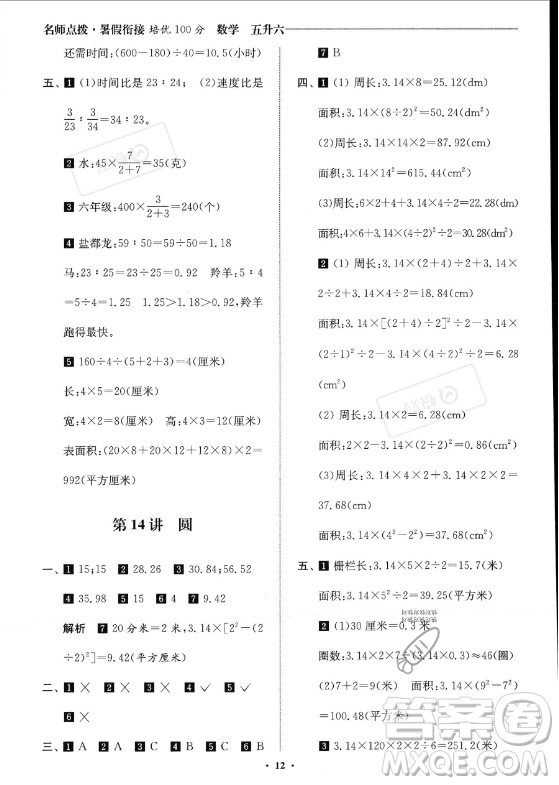 名师点拨·暑假衔接 培优100分 数学 五升六
还需时间:(600-180)÷40=10.5(小时)
五、1 (1)时间比是23∶24; (2)速度比是
3/23∶3/34=34∶23。
2 水:45×7/(2+7)=35(克)
3 六年级:400×3/(2+3)=240(个)
4 盐都龙:59∶50=59÷50=1.18
马:23∶25=23÷25=0.92 羚羊:5∶4
=5÷4=1.25 1.25>1.18>0.92,羚羊
跑得最快。
5 160÷4÷(5+2+3)=4(厘米)
长:4×5=20(厘米)
宽:4×2=8(厘米) 高:4×3=12(厘米)
表面积:(20×8+20×12+12×8)×2=
992(平方厘米)
第14讲 圆
一、1 15;15 2 28.26 3 30.84;56.52
4 35.98 5 15 6 7 7 9.42
解析 7 20分米=2米,3.14×[2²-(2
÷2)²]=9.42(平方米)
二、1 × 2 × 3 × 4 ✓ 5 ✓
6 ×
三、1 A 2 A 3 B 4 C 5 B 6 B
7 B
四、1 (1)周长:3.14×8=25.12(dm)
面积:3.14×(8÷2)²=50.24(dm²)
(2)周长:3.14×14×2=87.92(cm)
面积:3.14×14²=615.44(cm²)
(3)周长:6×2+4+3.14×4÷2=22.28(dm)
面积:4×6+3.14×(4÷2)²÷2=30.28(dm²)
2 (1) 周长:3.14×(2+4)÷2+3.14×
2÷2+3.14×4÷2=18.84(cm)
面积:3.14×[(2+4)÷2]²÷2-3.14×
(2÷1)²÷2-3.14×(4÷2)²÷2=6.28
(cm²)
(2) 周长:3.14×2=6.28(cm)
面积:2×2-3.14×(2÷2)²=0.86(cm²)
(3)周长:3.14×2×2+3.14×4×2=
37.68(cm)
面积:3.14×(4²-2²)=37.68(cm²)
五、1 栅栏长:3.14×5×2÷2=15.7(米)
面积:3.14×5²÷2=39.25(平方米)
2 (1)30厘米=0.3米
圈数:3.14×2×7÷(3.14×0.3)≈46(圈)
(2)7+2=9(米) 面积:3.14×(9²-7²)
=100.48(平方米)
3 3.14×120×2÷6×2=251.2(米)
·12·
答案圈